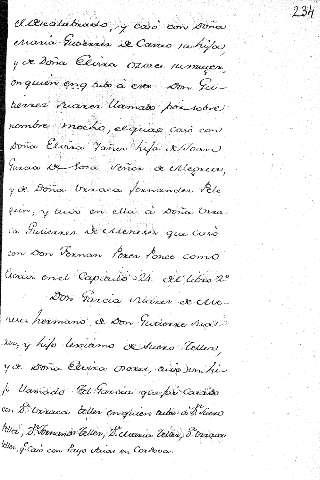 234
el Descalabrado, y casó con Doña
Maria Gutierres de Castro su hija
y de Doña Elvira Osores su muger
en quien engendró á este Don Gu-
tierres Suares llamado por sobre
nombre mocho, el qual casó con
Doña Elvira Yañes hija de Juan
Garcia de Sosa Señor de
y de Doña Urraca fernandes Pele
grin, y tuvo en ella á Doña Urra-
ca Gutierres de Meneses que casó
con Don Fernan Peres Ponce como
en el Capitulo 24 del libro 2º
Don Garcia Suares de Me-
neses hermano de Don Gutierre Sua-
res, y hijo de Suero Tellez,
y de Doña Elvira Osores, tuvo un hi-
jo llamado Tel Garcia que fué casado
con Dª Urraca Tellez en quien tubo á Dn Suero
Tellez, Dn Fernando Tellez, Dª Maria Tellez, Dª Urraca
Tellez, q. casó con Payo Arias en Cordova.